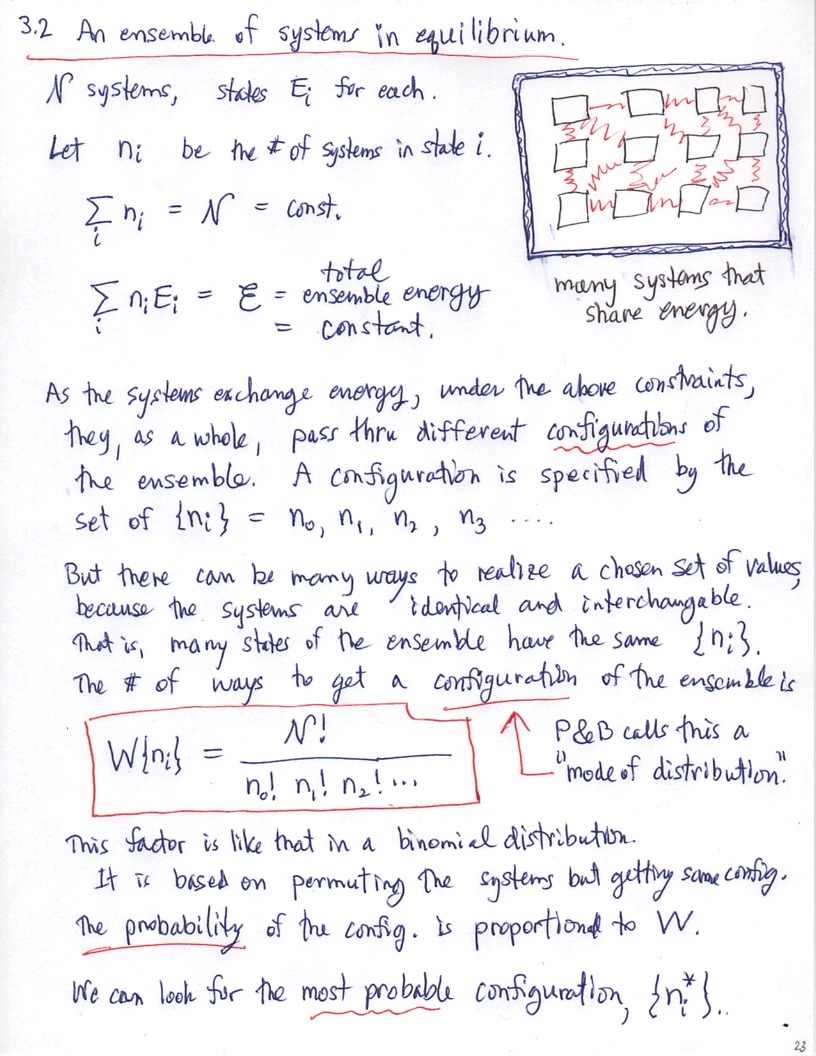 3.2 An ensemble of systems in equilibrium.
N systems, states Ei for each.
Let ni be the # of systems in state i.
∑i ni = N = const.
∑i niEi = Ɛ = total ensemble energy
= constant.
many systems that
share energy.
As the systems exchange energy, under the above constraints,
they, as a whole, pass thru different configurations of
the ensemble. A configuration is specified by the
set of {ni} = n0, n1, n2, n3 ....
But there can be many ways to realize a chosen set of values,
because the systems are identical and interchangable.
That is, many states of the ensemble have the same {ni}.
The # of ways to get a configuration of the ensemble is
W{ni} = N! / n0! n1! n2! ...
P&B calls this a
"mode of distribution."
This factor is like that in a binomial distribution.
It is based on permuting the systems but getting same config.
The probability of the config. is proportional to W.
We can look for the most probable configuration, {ni*}..
23